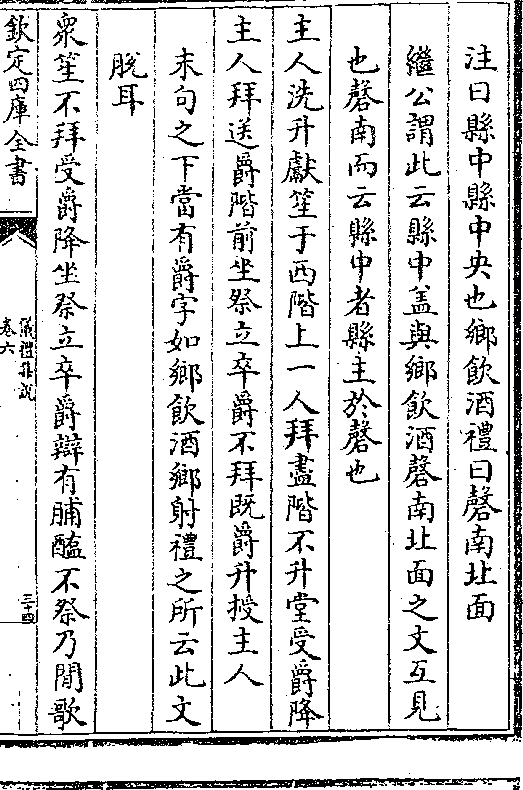 注曰縣中縣中央也鄉飲酒禮曰磬南北面
繼公謂此云縣中盖與鄉飲酒磬南北面之文互見
也磬南而云縣中者縣主於磬也
主人洗升獻笙于西階上一人拜盡階不升堂受爵降
主人拜送爵階前坐祭立卒爵不拜既爵升授主人
末句之下當有爵字如鄉飲酒鄉射禮之所云此文
脱耳
衆笙不拜受爵降坐祭立卒爵辯有脯醢不祭乃間歌
欽定四庫全書
儀禮集説
卷六
三十四